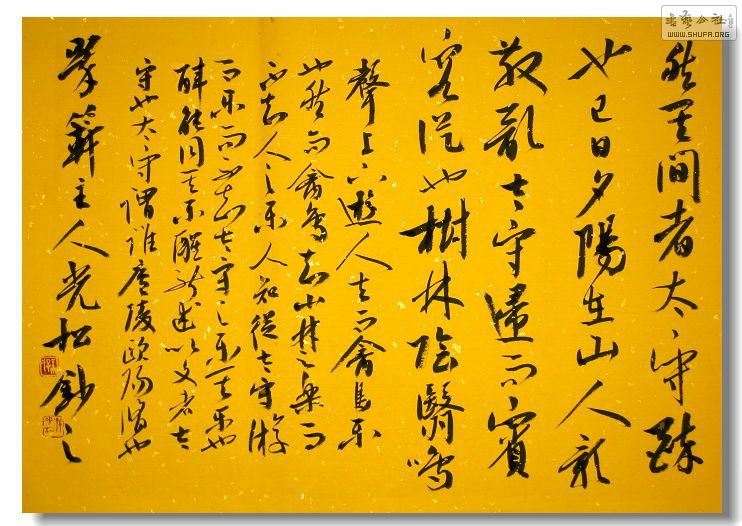 書藝公社
WWW.SHUFA.ORG
然其間者太守醉
也已日夕陽在山人影
散亂太守歸而賓
客從也樹林陰翳鳴
聲上下遊人去而禽鳥樂
也然而禽鳥知山林之樂而
不知人之樂人知從太守游
而樂而不知太守之樂其樂也
醉能同其樂醒能述以文者太
守也太守謂誰廬陵歐陽脩也
主人光松鈔之